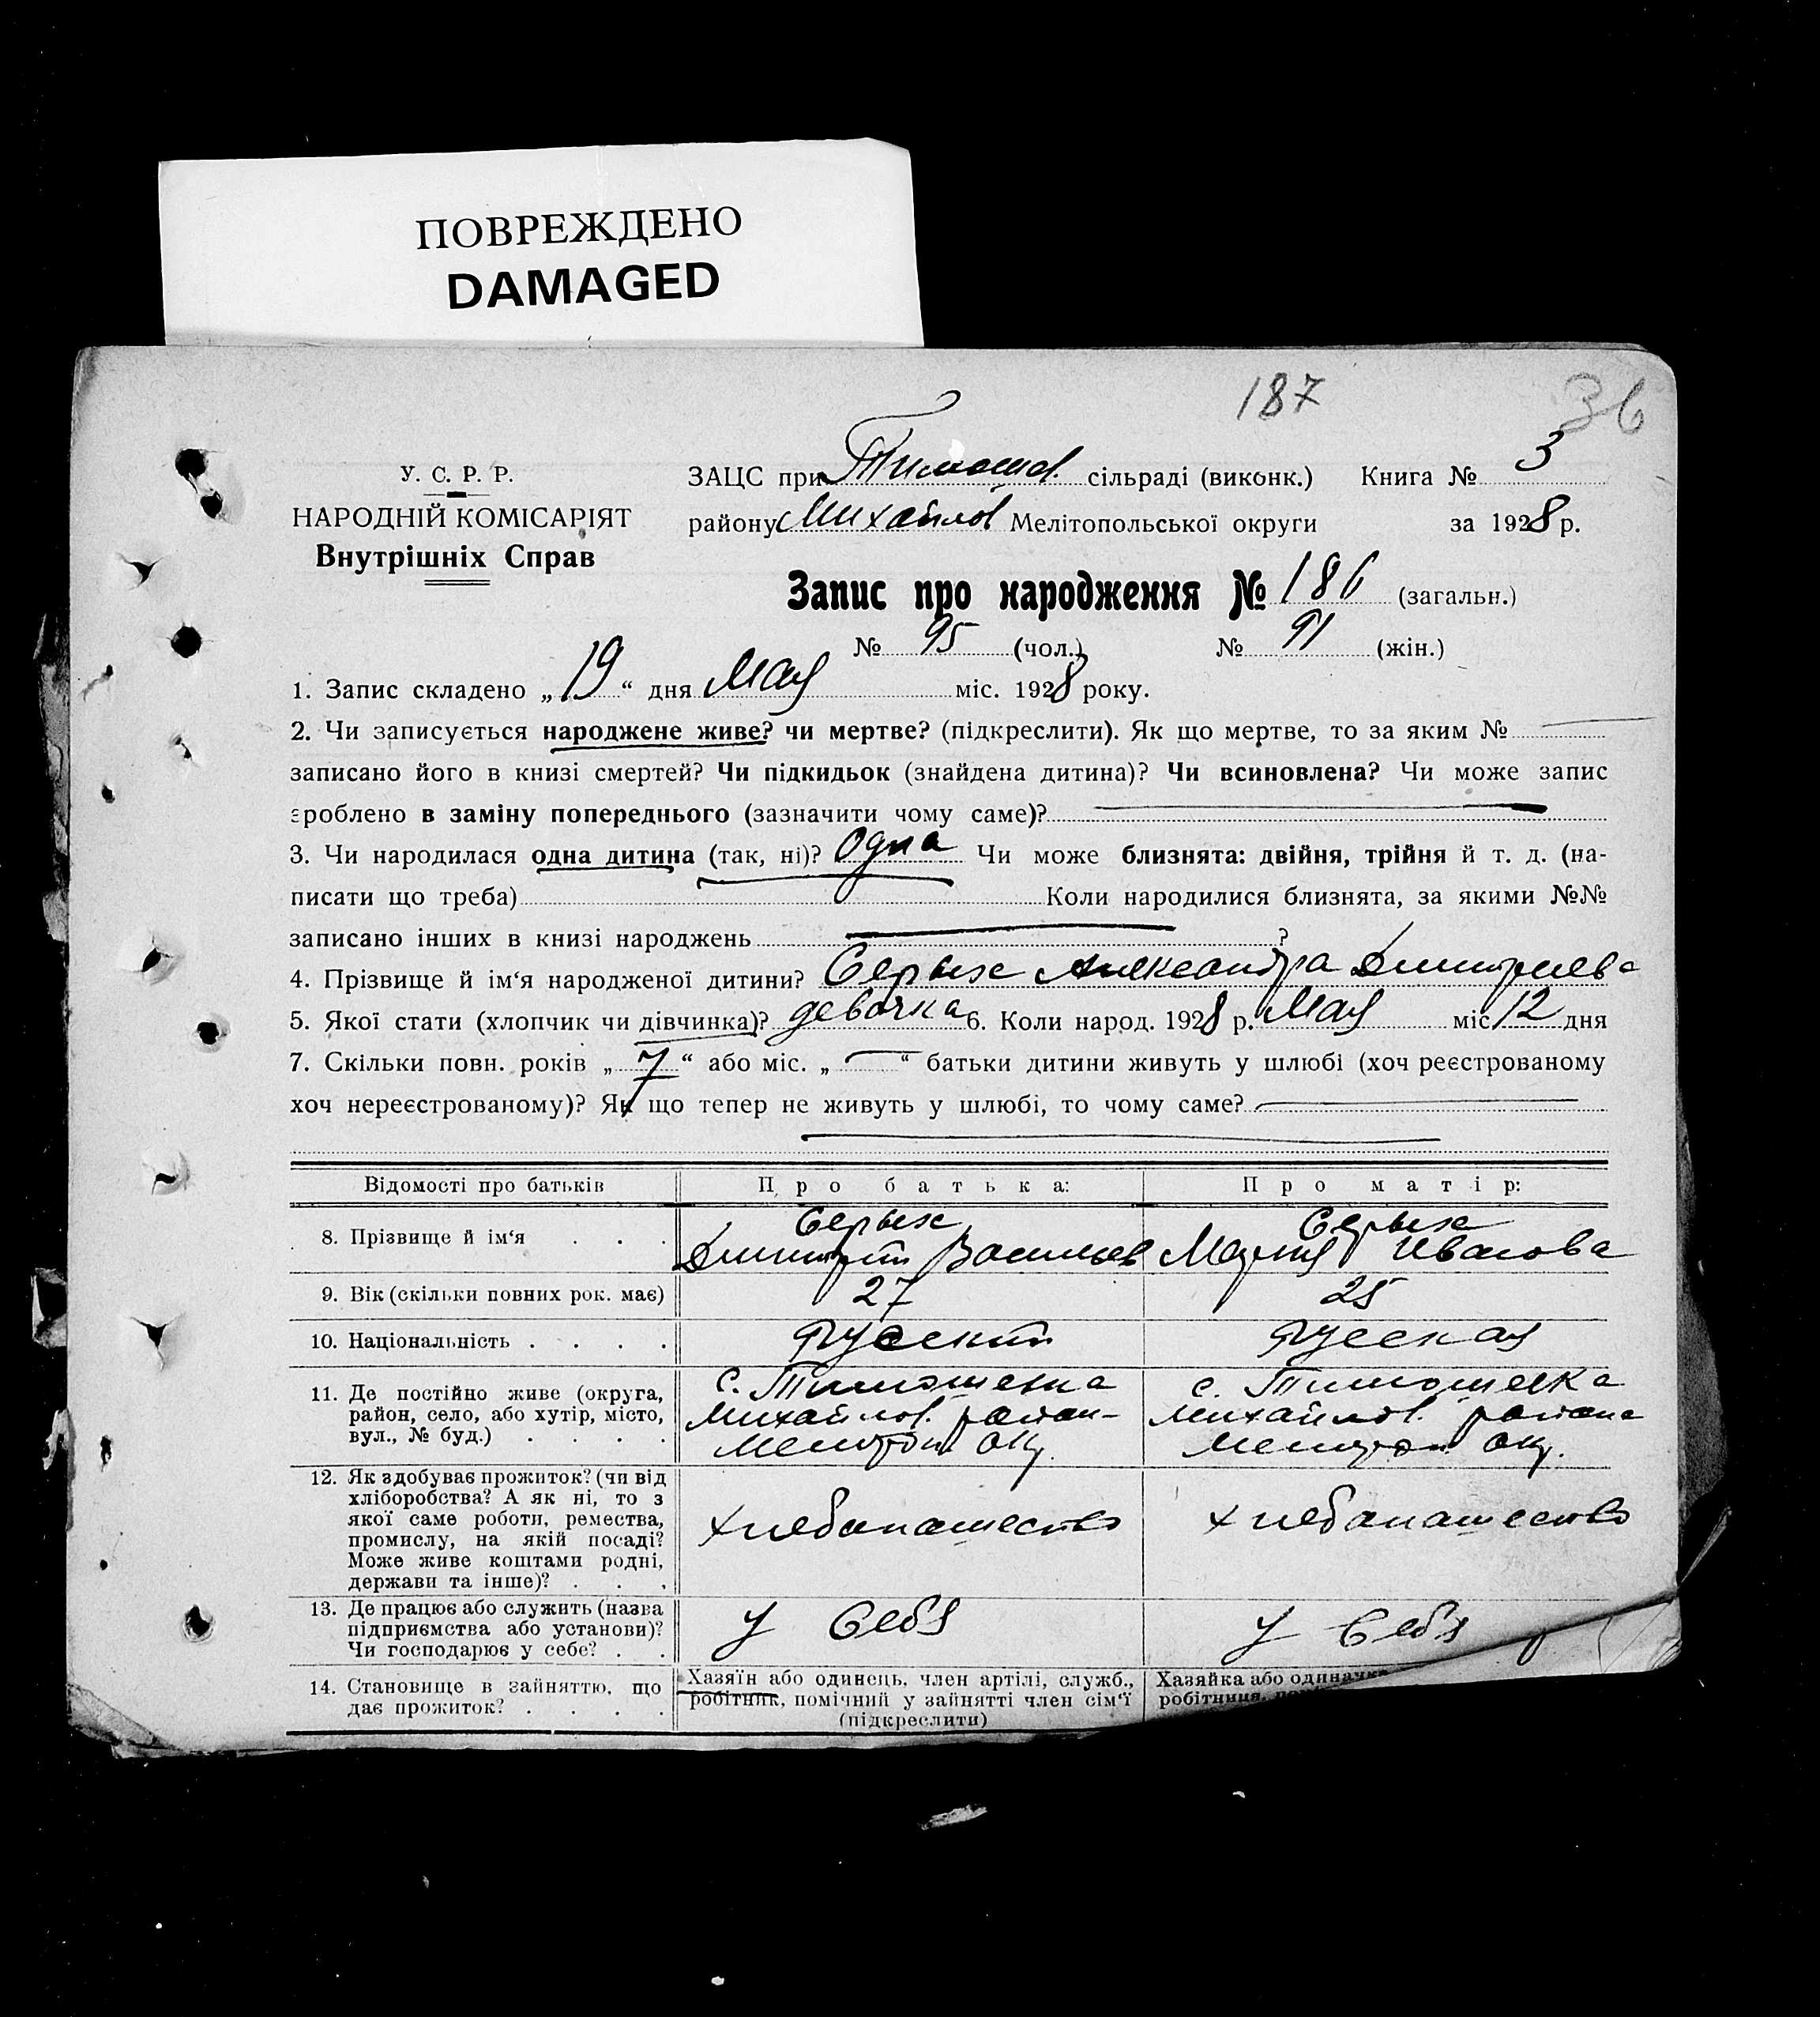 ПОВРЕЖДЕНО
DAMAGED
187
36
У. С. Р. Р.
НАРОДНІЙ КОМІСАРІЯТ
Внутрішніх Справ
ЗАЦС при Тимошов. сільраді (виконк.) Книга № 3
району Михайлов Мелітопольської округи за 1928 р.
Запис про народження № 186 (загальн.)
№ 95 (чол.) № 91 (жін.)
1. Запис складено „19“ дня Мая міс. 1928 року.
2. Чи записується народжене живе? чи мертве? (підкреслити). Як що мертве, то за яким №
записано його в книзі смертей? Чи підкидьок (знайдена дитина)? Чи всиновлена? Чи може запис
зроблено в заміну попереднього (зазначити чому саме)?
3. Чи народилася одна дитина (так, ні)? Одна Чи може близнята: двійня, трійня й т. д. (на-
писати що треба) Коли народилися близнята, за якими №№
записано інших в книзі народжень ?
4. Прізвище й ім‘я народженої дитини? Серых Александра Дмитриева
5. Якої стати (хлопчик чи дівчинка)? девочка 6. Коли народ. 1928 р. Мая міс. 12 дня
7. Скільки повн. років „7“ або міс. „ “ батьки дитини живуть у шлюбі (хоч реєстрованому
хоч нереєстрованому)? Як що тепер не живуть у шлюбі, то чому саме?
Відомості про батьків
Про батька:
Про матір:
8. Прізвище й ім‘я . . .
Серых
Дмитрий Васильев
Серых
Мария Иванова
9. Вік (скільки повних рок. має)
27
25
10. Національність . . . .
Русский
Русская
11. Де постійно живе (округа,
район, село, або хутір, місто,
вул., № буд.) . . . .
с. Тимошевка
Михайлов. район-
Мелитоп окр.
с. Тимошевка
Михайлов. района
Мелитоп окр.
12. Як здобуває прожиток? (чи від
хліборобства? А як ні, то з
якої саме роботи, ремества,
промислу, на якій посаді?
Може живе коштами родні,
держави та інше)? . . .
хлебапашество
хлебапашество
13. Де працює або служить (назва
підприємства або установи)?
Чи господарює у себе? . .
у себя
у себя
14. Становище в зайняттю, що
дає прожиток? . . . .
Хазяїн або одинець, член артілі, служб.,
робітник, помічний у зайнятті член сім‘ї
(підкреслити)
Хазяйка або одиначка
робітниця,